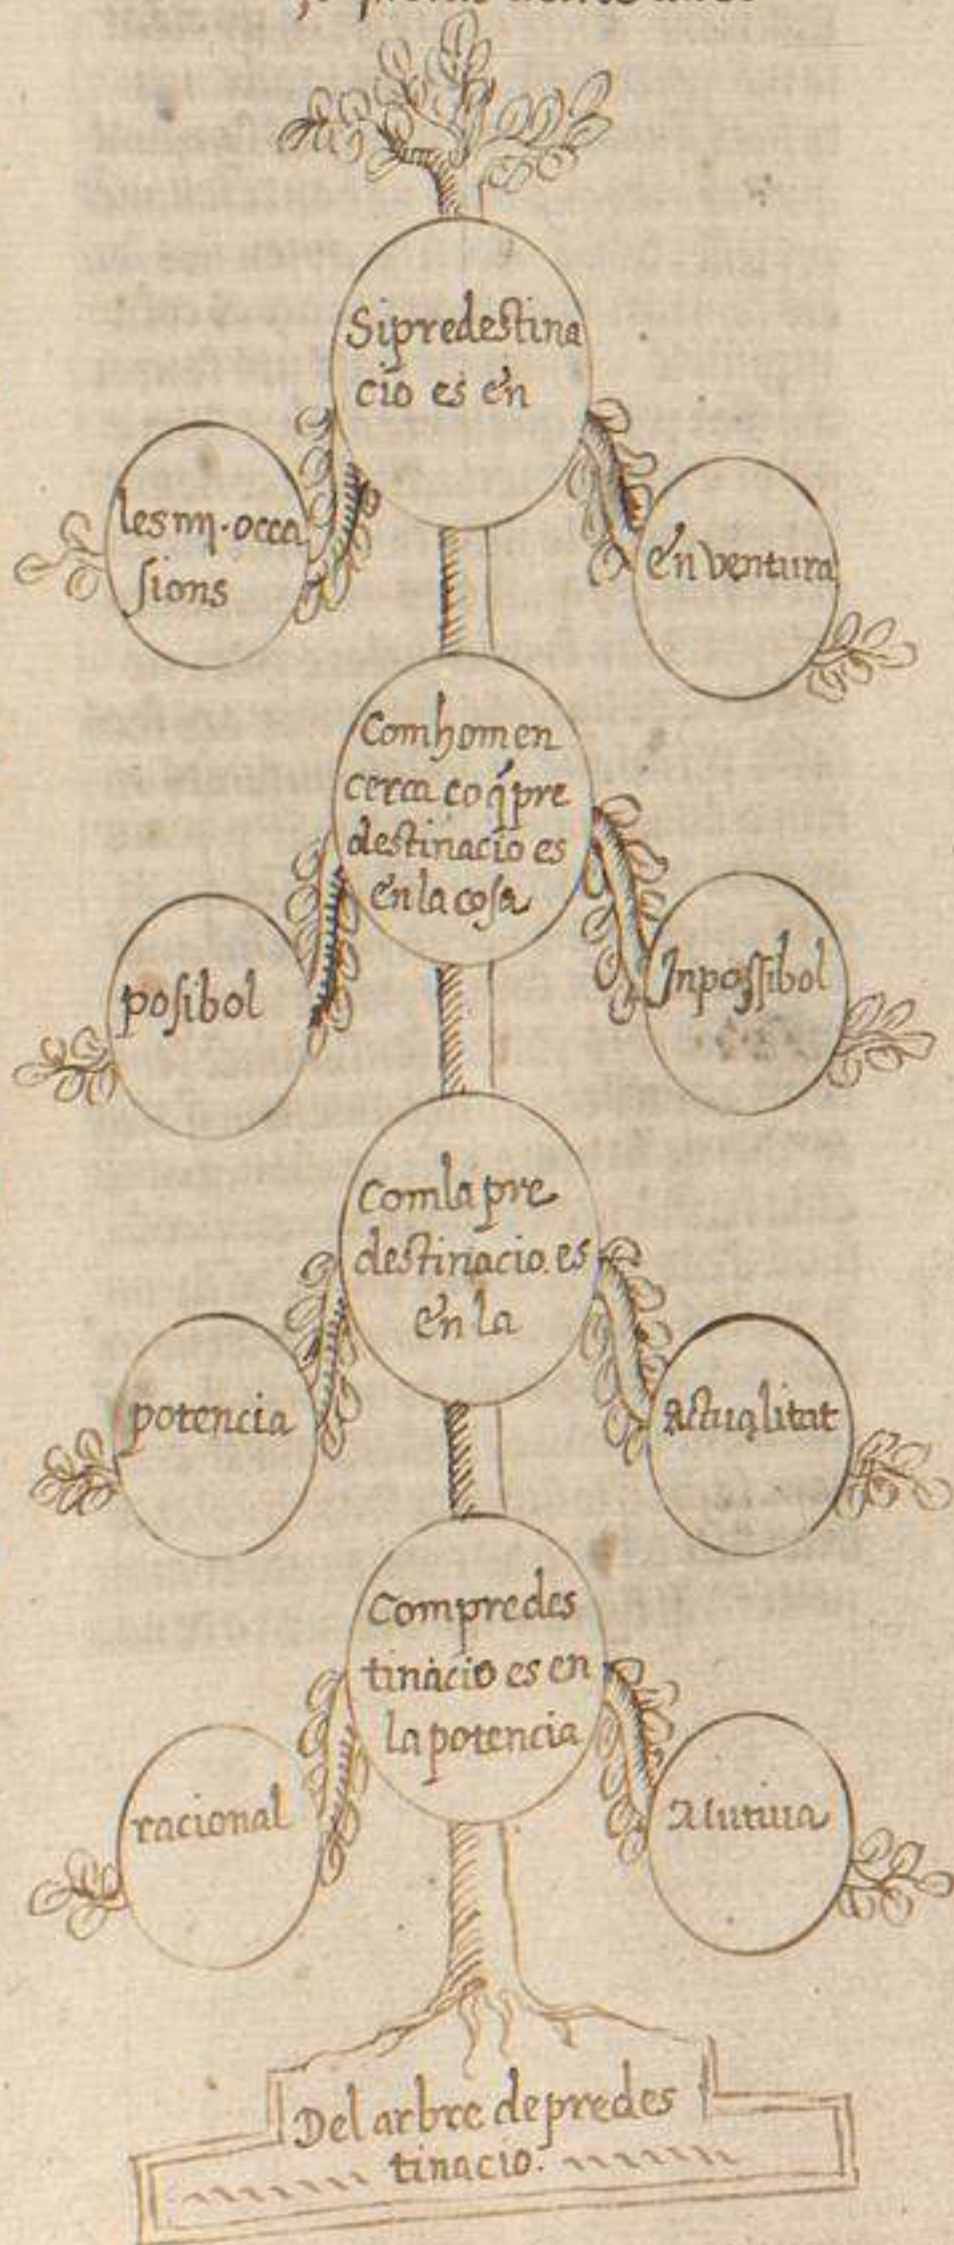 Sipredestina
cio es en
les iiij. occa
sions
en ventura
Com hom en
cerca co q̃ pre
destinacio es
en la cosa
posibol
Inpossibol
Com la pre
destinacio. es
en la
potencia
actualitat
Com predes
tinacio es en
la potencia
racional
Del arbre de predes
tinacio.